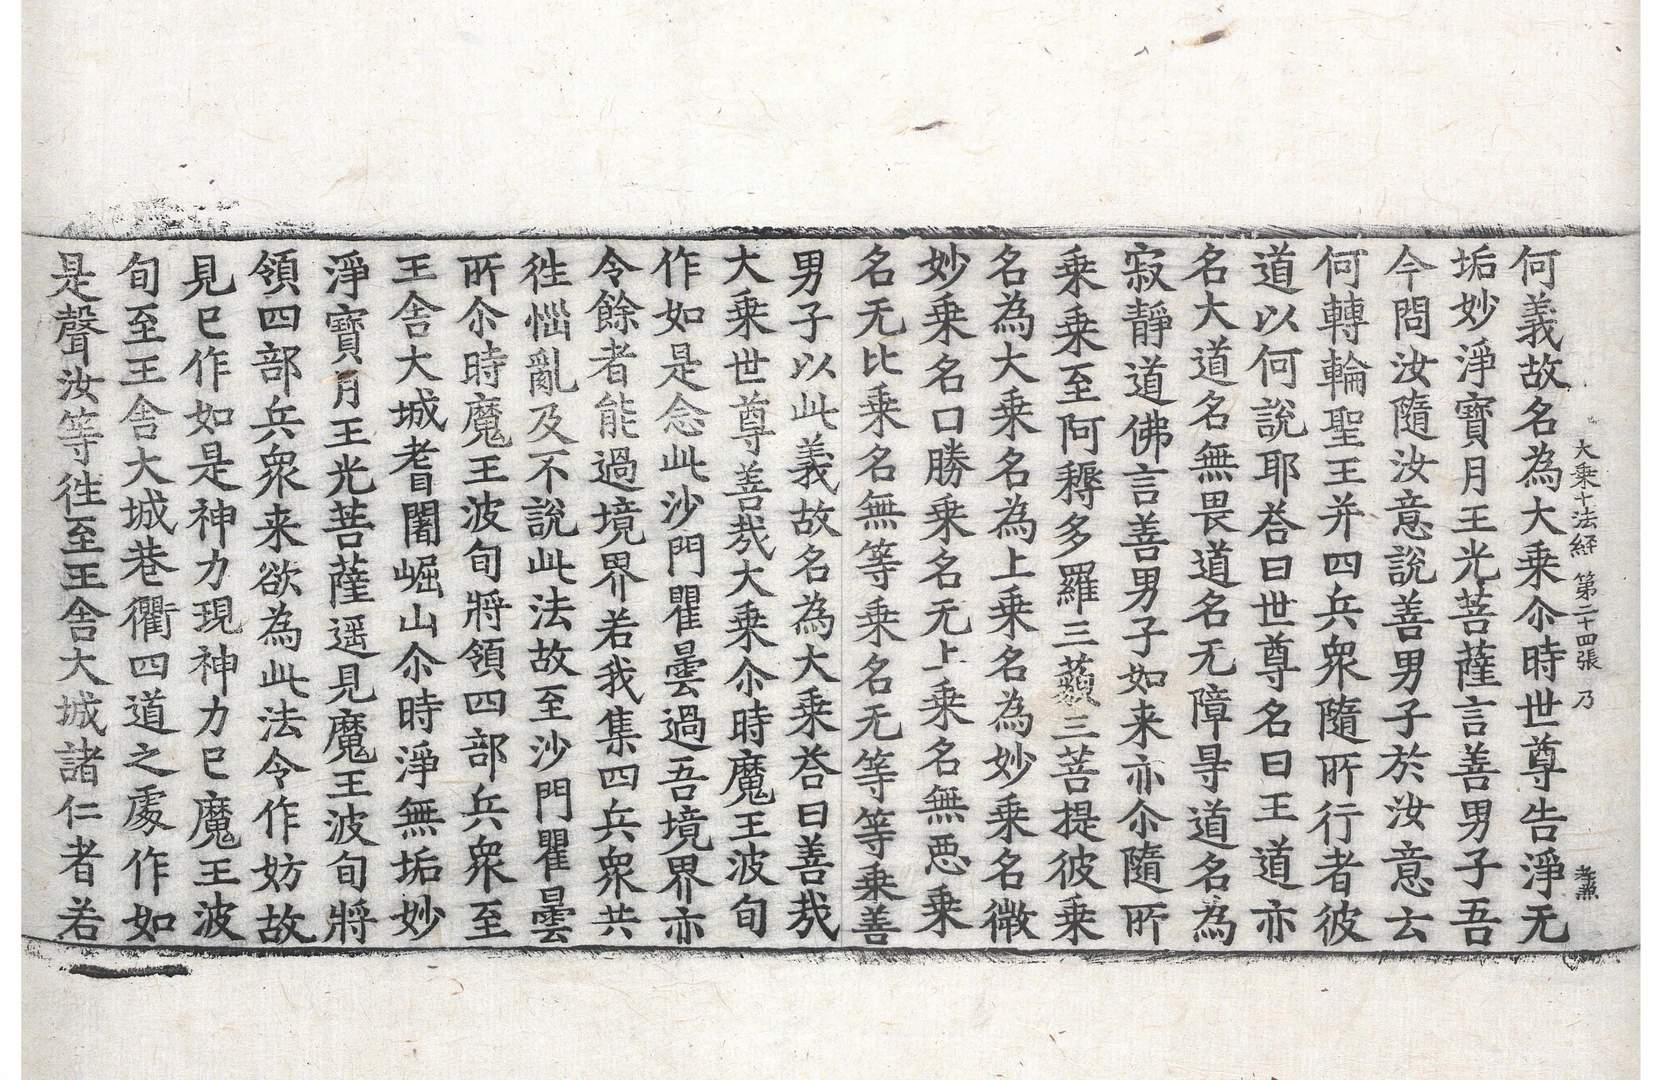 大乗十法経 第二十四張 乃 孝兼
何義故名為大乗尒時世尊告淨无
垢妙淨寶月王光菩薩言善男子吾
今問汝隨汝意說善男子於汝意云
何轉輪聖王并四兵衆隨所行者彼
道以何說耶荅曰世尊名曰王道亦
名大道名無畏道名无障㝵道名為
寂靜道佛言善男子如来亦尒隨所
乗乗至阿耨多羅三藐三菩提彼乗
名為大乗名為上乗名為妙乗名微
妙乗名口勝乗名无上乗名無惡乗
名无比乗名無等乗名无等等乗善
男子以此義故名為大乗荅曰善哉
大乗世尊善哉大乗尒時魔王波旬
作如是念此沙門瞿曇過吾境界亦
令餘者能過境界若我集四兵衆共
徃惱亂及不說此法故至沙門瞿曇
所尒時魔王波旬將領四部兵衆至
王舍大城耆闍崛山尒時淨無垢妙
淨寶月王光菩薩遥見魔王波旬將
領四部兵衆来欲為此法令作妨故
見已作如是神力現神力已魔王波
旬至王舍大城巷衢四道之處作如
是聲汝等徃至王舍大城諸仁者若